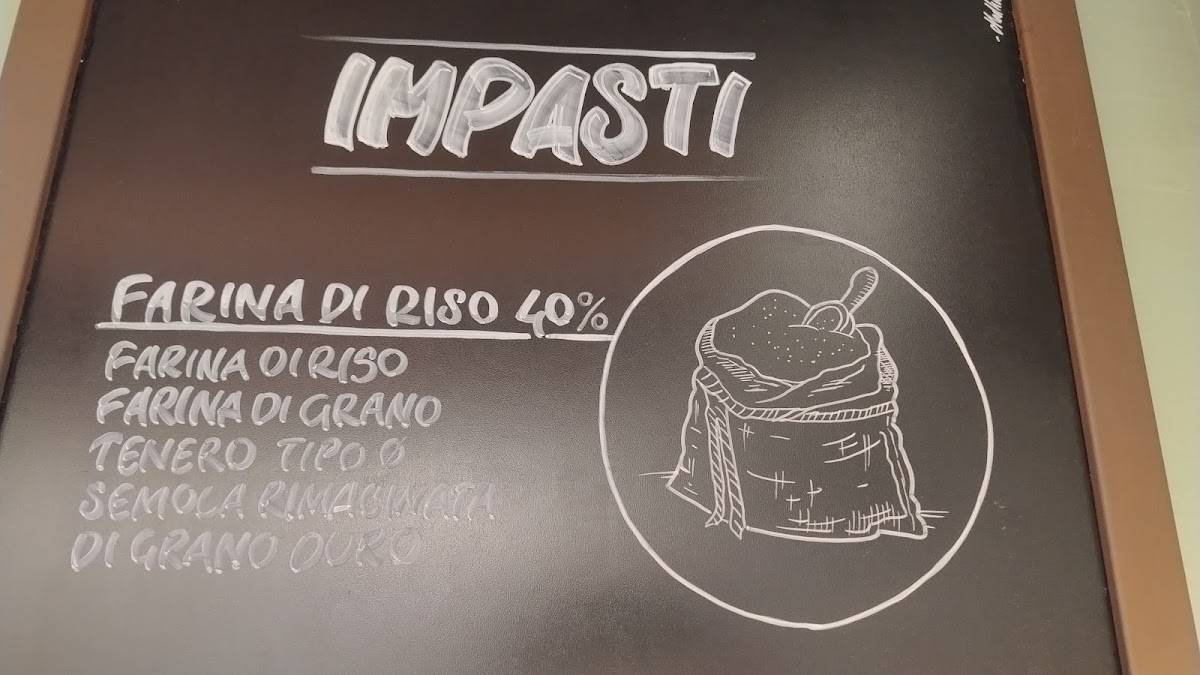 IMPASTI
FARINA DI RISO 40%
FARINA DI RISO
FARINA DI GRANO
TENERO TIPO Ø
SEMOLA RIMACINATA
DI GRANO DURO